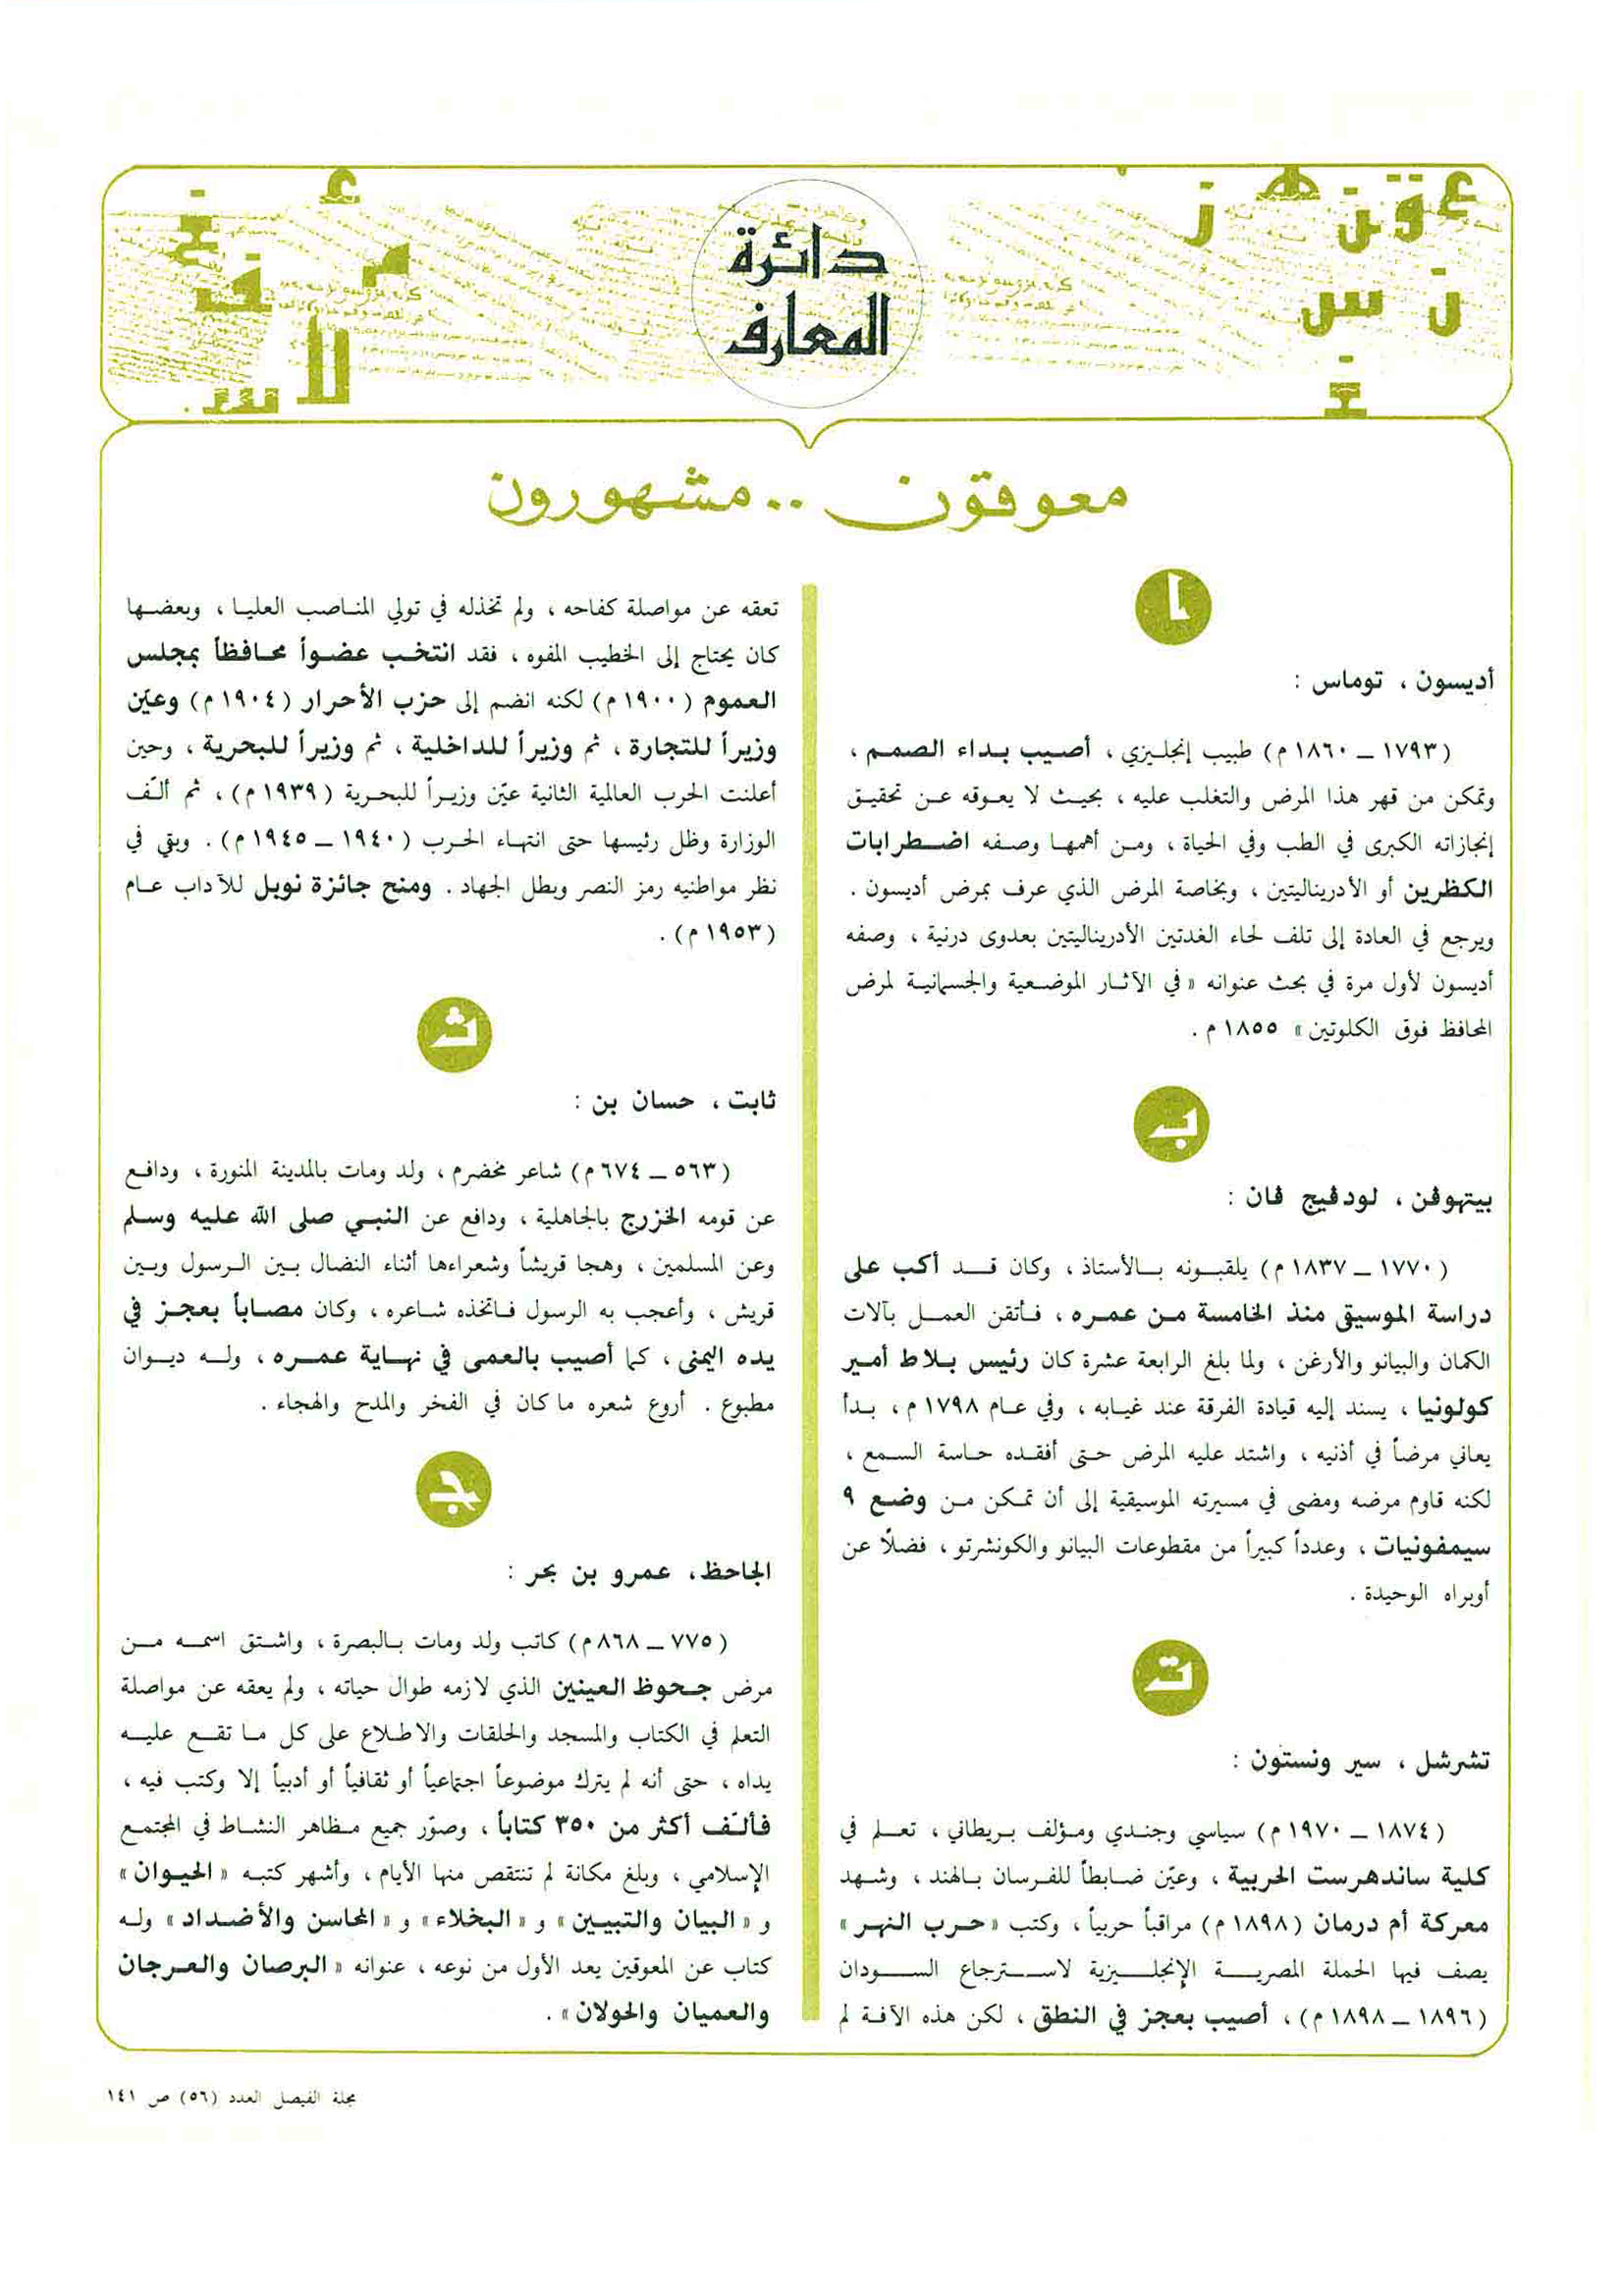 دائرة
المعارف
معوقون .. مشهورون
ا
أديسون ، توماس :
(١٧٩٣ ــ ١٨٦٠ م) طبيب إنجليزي ، أصيب بداء الصمم ،
وتمكن من قهر هذا المرض والتغلب عليه ، بحيث لا يعوقه عن تحقيق
إنجازاته الكبرى في الطب وفي الحياة ، ومن أهمها وصفه اضطرابات
الكظرين أو الأدريناليتين ، وبخاصة المرض الذي عرف بمرض أديسون .
ويرجع في العادة إلى تلف لحاء الغدتين الأدريناليتين بعدوى درنية ، وصفه
أديسون لأول مرة في بحث عنوانه « في الآثار الموضعية والجسمانية لمرض
المحافظ فوق الكلوتين » ١٨٥٥ م .
بـ
بيتهوڤن ، لودڤيج ڤان :
(١٧٧٠ ــ ١٨٣٧ م) يلقبونه بالأستاذ ، وكان قد أكب على
دراسة الموسيقى منذ الخامسة من عمره ، فأتقن العمل بآلات
الكمان والبيانو والأرغن ، ولما بلغ الرابعة عشرة كان رئيس بلاط أمير
كولونيا ، يسند إليه قيادة الفرقة عند غيابه ، وفي عام ١٧٩٨ م ، بدأ
يعاني مرضاً في أذنيه ، واشتد عليه المرض حتى أفقده حاسة السمع ،
لكنه قاوم مرضه ومضى في مسيرته الموسيقية إلى أن تمكن من وضع ٩
سيمفونيات ، وعدداً كبيراً من مقطوعات البيانو والكونشرتو ، فضلاً عن
أوبراه الوحيدة .
تـ
تشرشل ، سير ونستون :
(١٨٧٤ ــ ١٩٧٠ م) سياسي وجندي ومؤلف بريطاني ، تعلم في
كلية ساندهرست الحربية ، وعيّن ضابطاً للفرسان بالهند ، وشهد
معركة أم درمان (١٨٩٨ م) مراقباً حربياً ، وكتب « حرب النهر »
يصف فيها الحملة المصرية الإنجليزية لاسترجاع السودان
(١٨٩٦ ــ ١٨٩٨ م) ، أصيب بعجز في النطق ، لكن هذه الآفة لم
تعقه عن مواصلة كفاحه ، ولم تخذله في تولي المناصب العليا ، وبعضها
كان يحتاج إلى الخطيب المفوه ، فقد انتخب عضواً محافظاً بمجلس
العموم (١٩٠٠ م) لكنه انضم إلى حزب الأحرار (١٩٠٤ م) وعيّن
وزيراً للتجارة ، ثم وزيراً للداخلية ، ثم وزيراً للبحرية ، وحين
أعلنت الحرب العالمية الثانية عيّن وزيراً للبحرية (١٩٣٩ م) ، ثم ألّف
الوزارة وظل رئيسها حتى انتهاء الحرب (١٩٤٠ ــ ١٩٤٥ م) . وبقي في
نظر مواطنيه رمز النصر وبطل الجهاد . ومنح جائزة نوبل للآداب عام
(١٩٥٣ م) .
ثـ
ثابت ، حسان بن :
(٥٦٣ ــ ٦٧٤ م) شاعر مخضرم ، ولد ومات بالمدينة المنورة ، ودافع
عن قومه الخزرج بالجاهلية ، ودافع عن النبي صلى الله عليه وسلم
وعن المسلمين ، وهجا قريشاً وشعراءها أثناء النضال بين الرسول وبين
قريش ، وأعجب به الرسول فاتخذه شاعره ، وكان مصاباً بعجز في
يده اليمنى ، كما أصيب بالعمى في نهاية عمره ، وله ديوان
مطبوع . أروع شعره ما كان في الفخر والمدح والهجاء .
جـ
الجاحظ ، عمرو بن بحر :
(٧٧٥ ــ ٨٦٨ م) كاتب ولد ومات بالبصرة ، واشتق اسمه من
مرض جحوظ العينين الذي لازمه طوال حياته ، ولم يعقه عن مواصلة
التعلم في الكتاب والمسجد والحلقات والاطلاع على كل ما تقع عليه
يداه ، حتى أنه لم يترك موضوعاً اجتماعياً أو ثقافياً أو أدبياً إلا وكتب فيه ،
فألّف أكثر من ٣٥٠ كتاباً ، وصوّر جميع مظاهر النشاط في المجتمع
الإسلامي ، وبلغ مكانة لم تنتقص منها الأيام ، وأشهر كتبه « الحيوان »
و « البيان والتبيين » و « البخلاء » و « المحاسن والأضداد » وله
كتاب عن المعوقين يعد الأول من نوعه ، عنوانه « البرصان والعرجان
والعميان والحولان » .
مجلة الفيصل العدد (٥٦) ص ١٤١